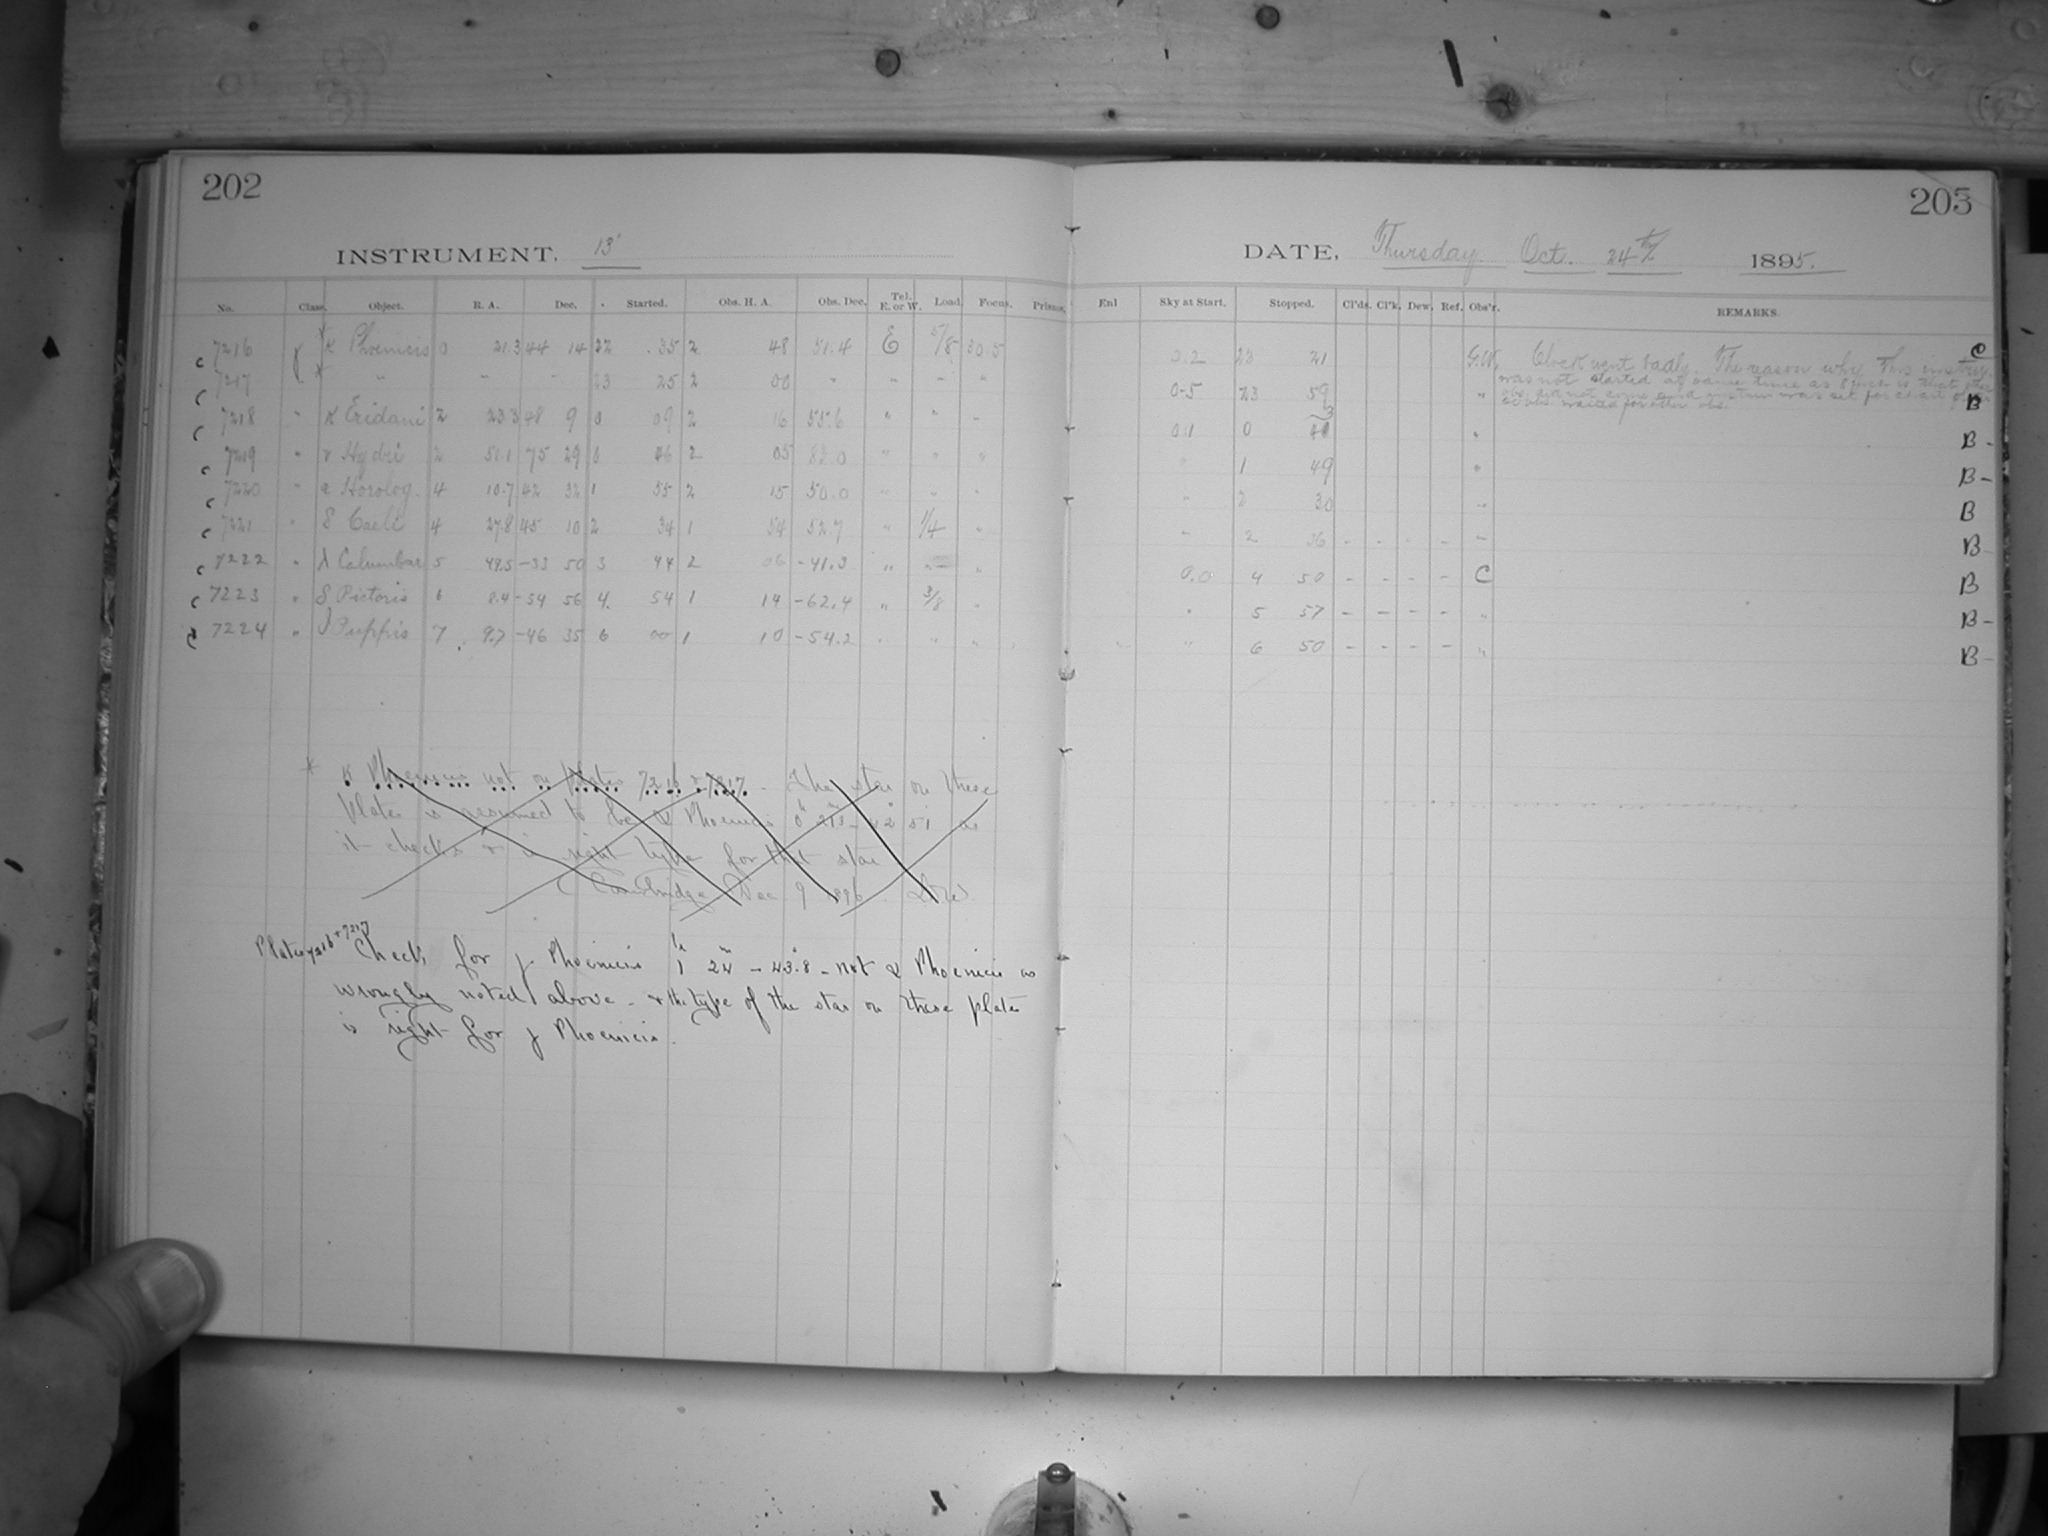 202
INSTRUMENT. 13"
No. Class. Object. R. A. Dec. Started. Obs. H. A. Obs. Dec. Tel. E. or W. Load. Focus. Prisms.
c 7216 * κ Phoenicis 0 21.3 44 14 22 35 2 48 51.4 E 5/8 30.5
c 7217 * " " " 23 25 2 00 " " " "
c 7218 " κ Eridani 2 23.3 48 9 0 09 2 16 55.6 " " "
c 7219 " Hydri 2 51.1 75 29 46 2 05 82.0 " " "
c 7220 " α Horolog. 4 10.7 42 32 1 55 2 15 50.0 " " "
c 7221 " δ Caeli 4 27.8 45 10 2 34 1 54 52.7 " 1/4 "
c 7222 " λ Columbae 5 49.5 -33 50 3 44 2 06 -41.3 " " "
c 7223 " δ Pictoris 6 8.4 -54 56 4. 54 1 14 -62.4 " 3/8 "
7224 " J Puppis 7 9.7 -46 35 6 00 1 10 -54.2 " " "
* κ Phoenicis not on plates 7216 & 7217. The star on these
plates is presumed to be α Phoenicis 0h 21.3 - 42° 51' as
it checks & is right type for that star
Cambridge Dec 9 1896
Plates 7216 + 7217 Check for γ Phoenicis 1h 24m - 43°.8 - not α Phoenicis as
wrongly noted above - & the type of the star on these plates
is right for γ Phoenicis.
203
DATE, Thursday Oct. 24th 1895.
Enl Sky at Start. Stopped. Cl'ds. Cl'k. Dew. Ref. Obs'r. REMARKS.
0.2 23 21 G.W. Clock went badly. The reason why this instru. C
was not started at same time as 8 inch is that the
obs. did not come and instru was set for start of
so obs. waited for other obs.
0.5 23 59 " B
0.1 0 " B -
" 1 49 " B -
" 2 30 " B
" 2 36 - - - - " B -
0.0 4 50 - - - - C B
" 5 57 - - - - " B -
" 6 50 - - - - " B -